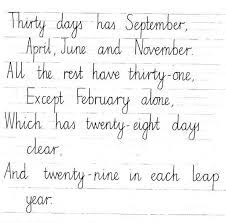 Thirty days has September,
April, June and November.
All the rest have thirty-one,
Except February alone,
Which has twenty-eight days
clear,
And twenty-nine in each leap
year.